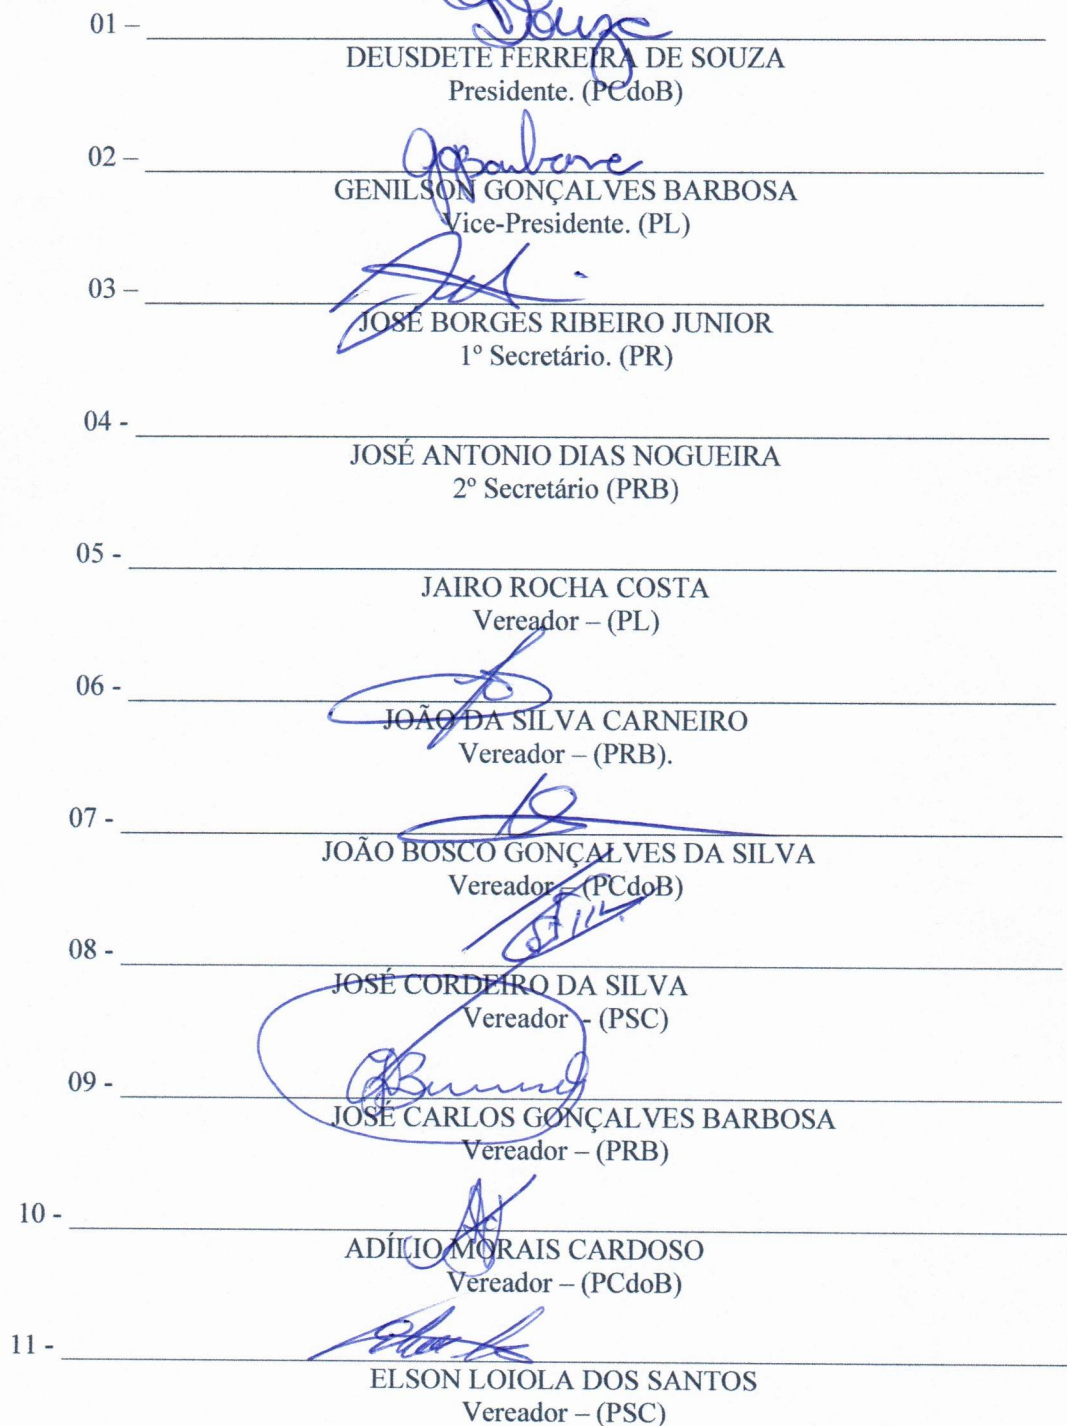 Souza
01 –
DEUSDETE FERREIRA DE SOUZA
Presidente. (PCdoB)
02 –
GENILSON GONÇALVES BARBOSA
Vice-Presidente. (PL)
03 –
JOSÉ BORGES RIBEIRO JUNIOR
1º Secretário. (PR)
04 -
JOSÉ ANTONIO DIAS NOGUEIRA
2º Secretário (PRB)
05 -
JAIRO ROCHA COSTA
Vereador – (PL)
06 -
JOÃO DA SILVA CARNEIRO
Vereador – (PRB).
07 -
JOÃO BOSCO GONÇALVES DA SILVA
Vereador – (PCdoB)
08 -
JOSÉ CORDEIRO DA SILVA
Vereador - (PSC)
09 -
JOSÉ CARLOS GONÇALVES BARBOSA
Vereador – (PRB)
10 -
ADÍLIO MORAIS CARDOSO
Vereador – (PCdoB)
11 -
ELSON LOIOLA DOS SANTOS
Vereador – (PSC)